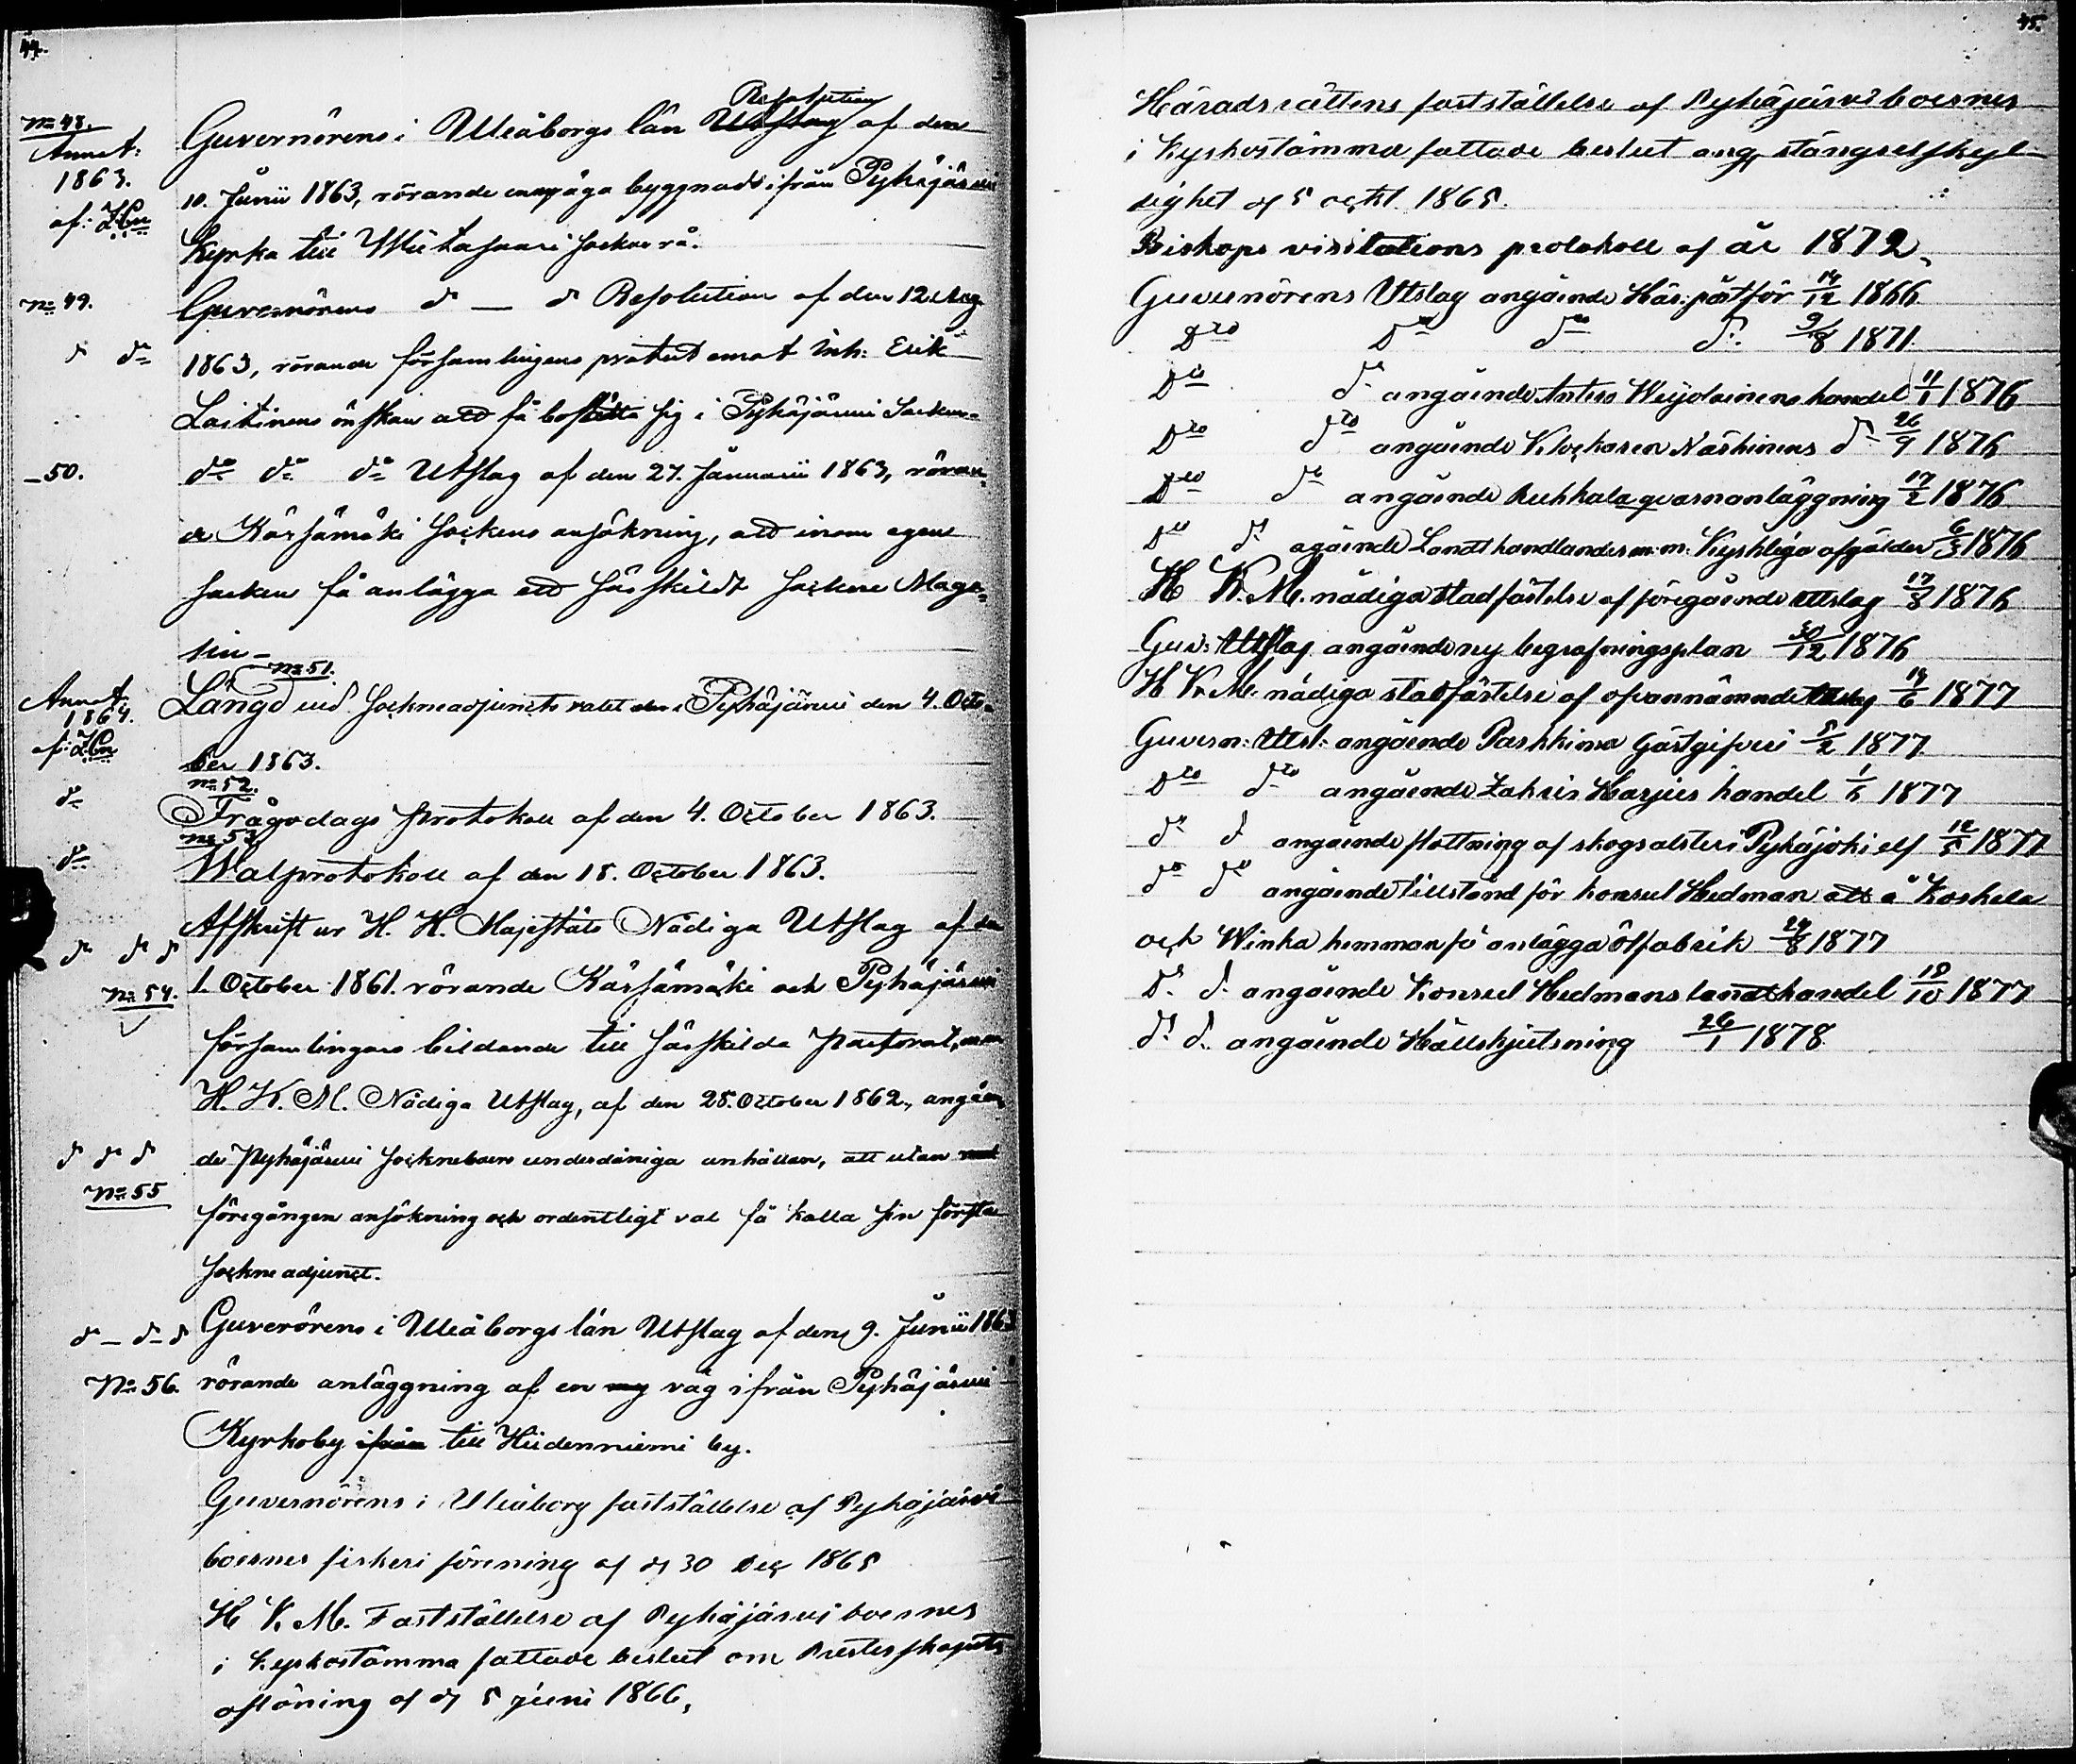 44.
No 48.
Annot:
1863.
af:
Resolution
Guvernörens i Uleåborgs län Utslag af den
10. Junii 1863, rörande byggnad ifrån Pyhäjärvi
Kyrka till Wiitasaari sockne rå.
No 49.
Guvernörens do — do Resolution af den 12 Aug
do do
1863, rörande församlingens protest emot Inh: Erik
Laitinens önskan att få bosätta sig i Pyhäjärvi Socken
— 50.
do do do Utslag af den 27. Januarii 1863, röran-
de Kärsämäki Sockens ansökning, att inom egen
socken få anlägga ett särskildt Sockne Maga-
sin —
No 51.
Annot.
1864.
af:
Längd vid Sockneadjuncts valet i Pyhäjärvi den 4. Octo-
ber 1863.
No 52.
do
Frågodags protokoll af den 4. October 1863.
No 53.
do
Walprotokoll af den 18. October 1863.
Afskrift ur H. K. Majestäts Nådiga Utslag af den
do do do
No 54.
1. October 1861. rörande Kärsämäki och Pyhäjärvi
församlingars bildande till särskilda Pastorat,
H. K. M. Nådiga Utslag, af den 28. October 1862, angåen-
do do do
No 55
de Pyhäjärvi Socknebors underdåniga anhållan, att utan
föregången ansökning och ordentligt val få kalla sin första
Sockneadjunct.
do — do do
Guvernörens i Uleåborgs län Utslag af den 9. Junii 1863
No 56.
rörande anläggning af en ny väg ifrån Pyhäjärvi
Kyrkoby ifrån till Hiidenniemi by.
Guvernörens i Uleåborg fastställelse af Pyhäjärvi
boernes fiskeri förening af d 30 Dec 1865
H K. M. Fastställelse af Pyhäjärvi boernes
i Kyrkostämma fattade beslut om Presterskapets
aflöning af d 5 juni 1866,
45.
Häradsrättens fastställelse af Pyhäjärvi boernes
i Kyrkostämma fattade beslut ang. stängselskyl-
dighet af 5 okt. 1865.
Biskops visitations protokoll af år 1872,
Guvernörens Utslag angående Här: 14/12 1866
Dto Dto do do 9/8 1871.
Dto do angående Anters Weijolainens handel 11/1 1876
Dto dto angående Klockaren Näskinens do 26/9 1876
Dto do angående Ruhkala qvarnanläggning 17/2 1876
Dto do agående Landthandlandes m. m. Kyrkliga afgälder 6/3 1876
H K. M. nådiga stadfästelse af föregående utslag 17/8 1876
Guv: Utslag angående ny begrafningsplan 30/12 1876
H K. M. nådiga stadfästelse af ofvannämnde utslag 14/6 1877
Guvern: Utsl: angående Parkkima Gästgifveri 5/2 1877.
Dto dto angående Zakris Harjus handel 1/6 1877
do d angående flottning af skogsalster i Pyhäjoki elf 12/5 1877
do do angående tillstånd för Konsul Hedman att å Koskela
och Winka hemman få anlägga ölfabrik 29/8 1877
Do d. angående Konsul Hedmans landthandel 18/10 1877
do d. angående Hållskjutsning 26/1 1878.